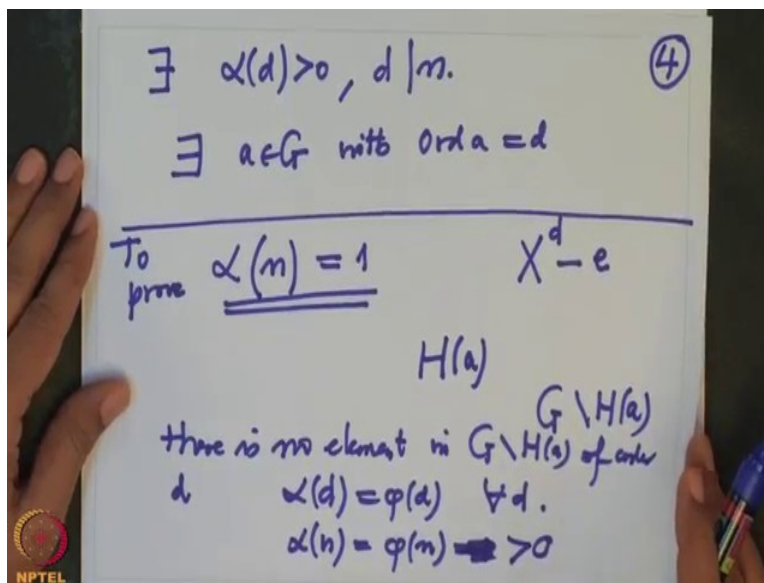 ④
∃ α(d)>0, d|n.
∃ a∈G with Ord a = d
To prove α(n) = 1
X^d - e
H(a)
G\H(a)
there is no element in G\H(a) of order
d α(d) = φ(d) ∀d.
α(n) = φ(n) >0
NPTEL